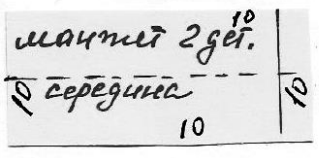 10
манжет 2 дет.
10 середина 10
10